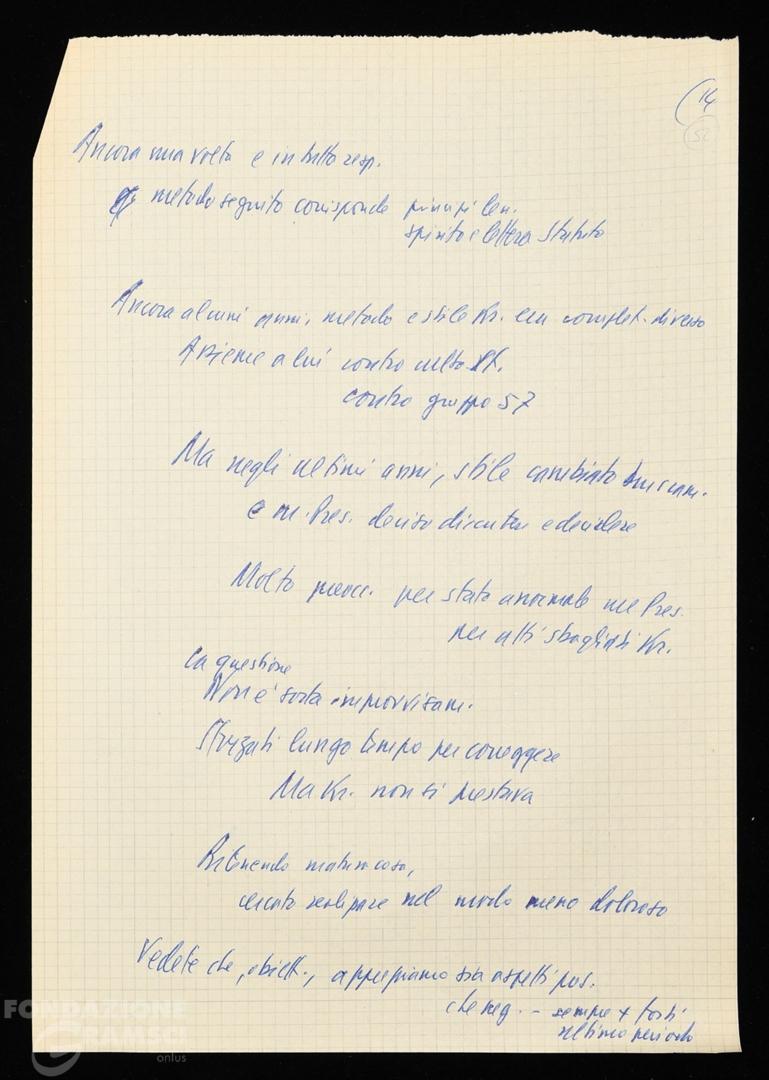 14
52
Ancora una volta e in tutta resp.
metodo seguito corrisponde principi len.
spirito e lettera Statuto
Ancora alcuni anni, metodo e stile Kr. era complet. diverso
Assieme a lui contro culto
contro gruppo 57
Ma negli ultimi anni, stile cambiato
e in Pres. deciso discutere e decidere
Molto preocc. per stato anormale nel Pres.
per atti sbagliati Kr.
La questione
Non è sorta improvvisam.
Sforzati lungo tempo per correggere
Ma Kr. non si prestava
Ritenendo matura cosa,
cercato realizzare nel modo meno doloroso
Vedete che, obiett., apprezziamo sia aspetti pos.
che neg. - sempre + forti
ultimo periodo
FONDAZIONE
GRAMSCI
onlus